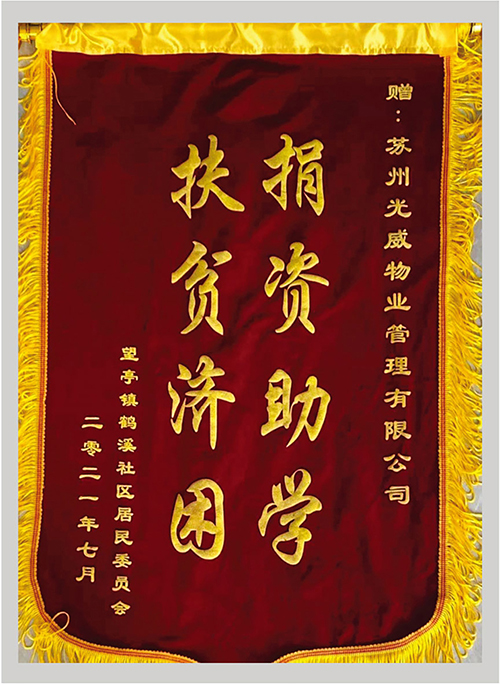 赠：苏州光威物业管理有限公司
捐资助学
扶贫济困
望亭镇鹤溪社区居民委员会
二零二一年七月